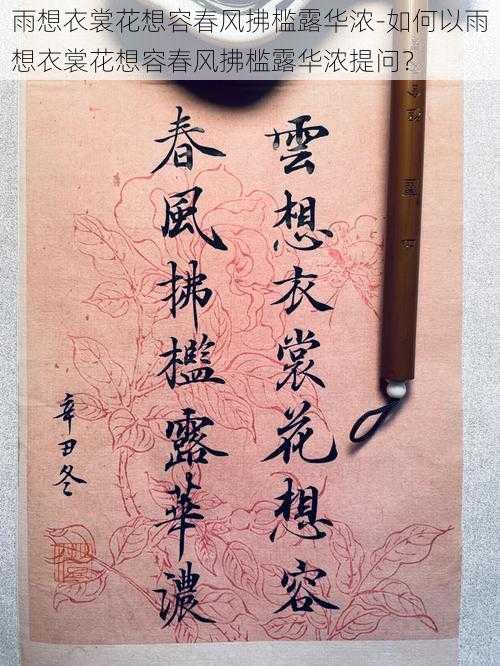 雨想衣裳花想容春风拂槛露华浓-如何以雨
想衣裳花想容春风拂槛露华浓提问？
雲想衣裳花想容
春風拂檻露華濃
辛丑冬